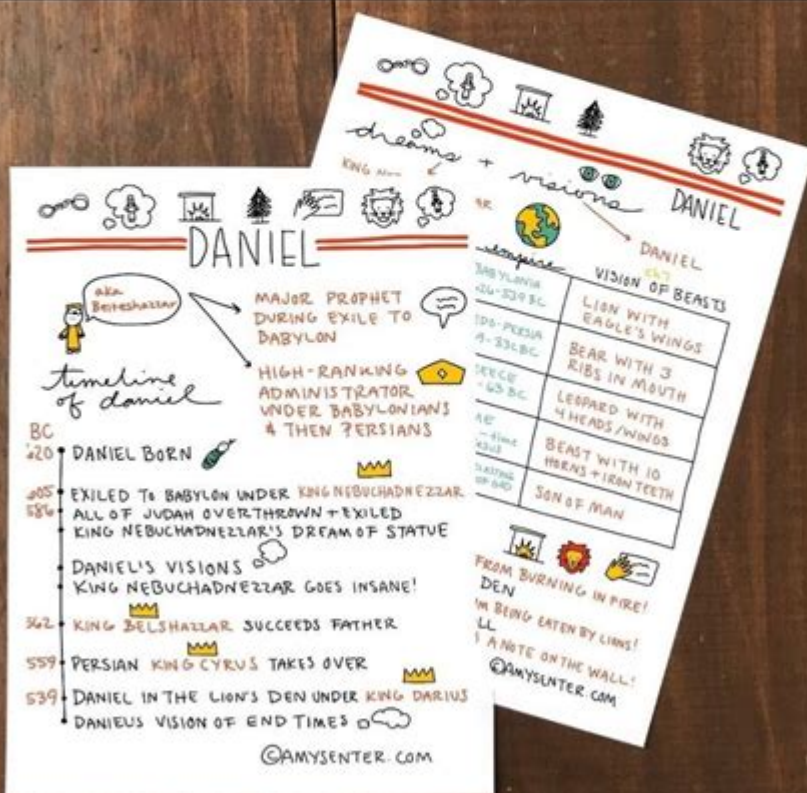 DANIEL
aka
Belteshazzar
MAJOR PROPHET
DURING EXILE TO
BABYLON
HIGH-RANKING
ADMINISTRATOR
UNDER BABYLONIANS
& THEN PERSIANS
timeline
of daniel
BC
620 DANIEL BORN
605 EXILED TO BABYLON UNDER KING NEBUCHADNEZZAR
586 ALL OF JUDAH OVERTHROWN + EXILED
KING NEBUCHADNEZZAR'S DREAM OF STATUE
DANIEL'S VISIONS
KING NEBUCHADNEZZAR GOES INSANE!
562 KING BELSHAZZAR SUCCEEDS FATHER
559 PERSIAN KING CYRUS TAKES OVER
539 DANIEL IN THE LION'S DEN UNDER KING DARIUS
DANIEL'S VISION OF END TIMES
©AMYSENTER.COM
dreams + visions
DANIEL
KING
DANIEL
ch7
VISION OF BEASTS
empire
BABYLONIA
-539 BC
LION WITH
EAGLE'S WINGS
-PERSIA
BEAR WITH 3
RIBS IN MOUTH
-63 BC
LEOPARD WITH
4 HEADS/WINGS
BEAST WITH 10
HORNS + IRON TEETH
OF GOD
SON OF MAN
FROM BURNING IN FIRE!
DEN
BEING EATEN BY LIONS!
A NOTE ON THE WALL!
©AMYSENTER.COM